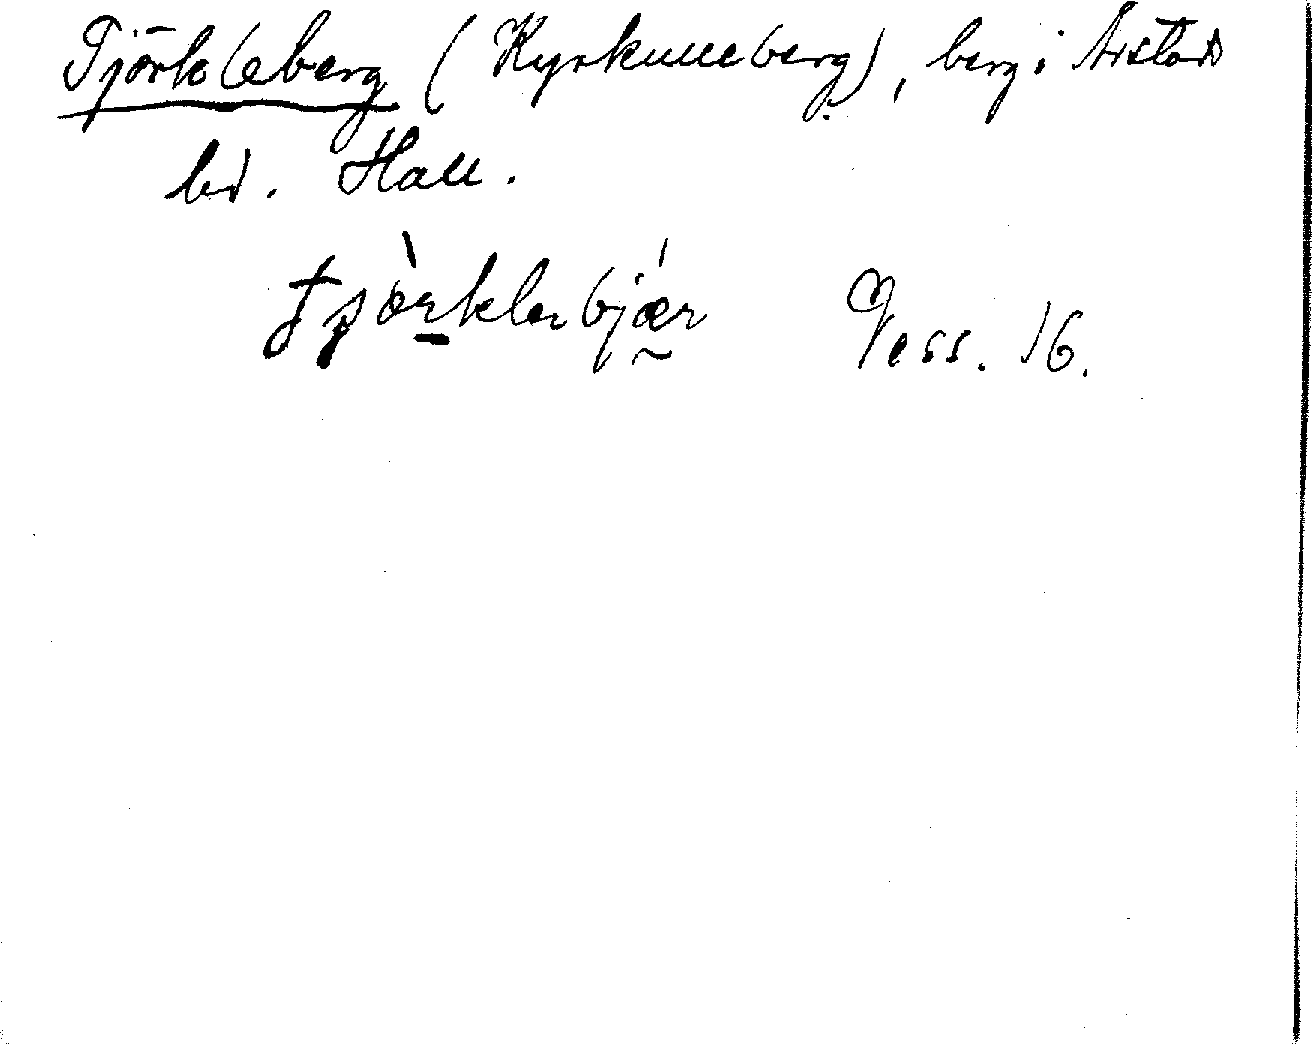 Tjörkleberg (Kyrkulleberg), berg i Årstads
hd. Hall.
tjörklerbjær Vess. 16.